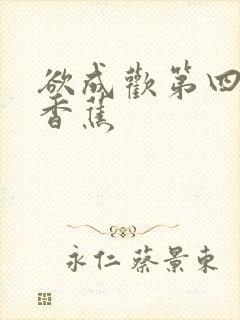 欲成歡第四
香蕉
永仁 蔡景東